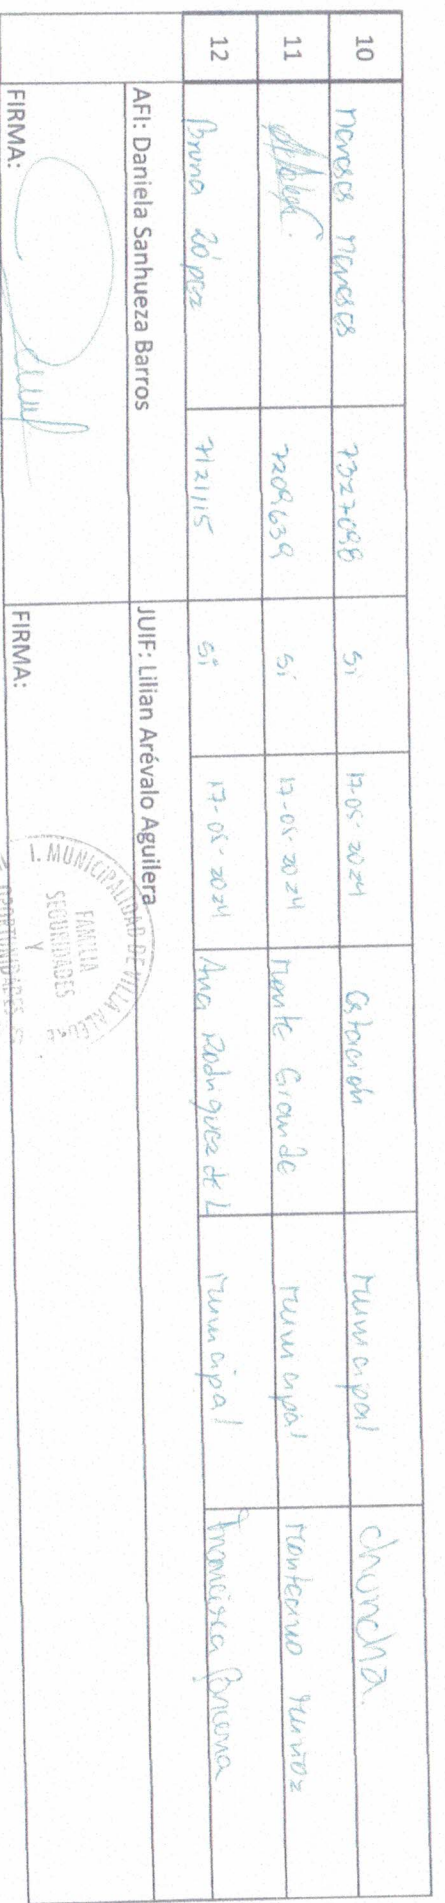 10 Meneses Meneses 7327098 Si 17-05-2024 Estación Municipal chuncha.
11 7209639 Si 17-05-2024 Monte Grande Municipal Montecino Muñoz
12 López 7121115 Si 17-05-2024 Ana Rodriguez de L Municipal Francisca
AFI: Daniela Sanhueza Barros JUIF: Lilian Arévalo Aguilera
FIRMA: FIRMA:
I. MUNICIPALIDAD DE VILLA
FAMILIA
SEGURIDADES
Y
OPORTUNIDADES